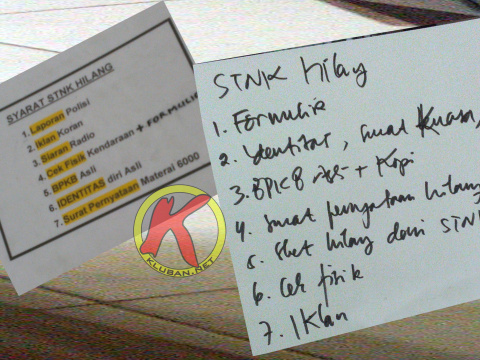 SYARAT STNK HILANG
1. Laporan Polisi
2. Iklan Koran
3. Siaran Radio
4. Cek Fisik Kendaraan + FORMULIR
5. BPKB Asli
6. IDENTITAS diri Asli
7. Surat Pernyataan Materai 6000
K
KLUBAN.NET
STNK hilang
1. Formulir
2. Identitas, surat Kuasa,
3. BPKB Asli + Kopi
4. Surat pernyataan hilang
5. Sket hilang dari STNK
6. Cek fisik
7. Iklan